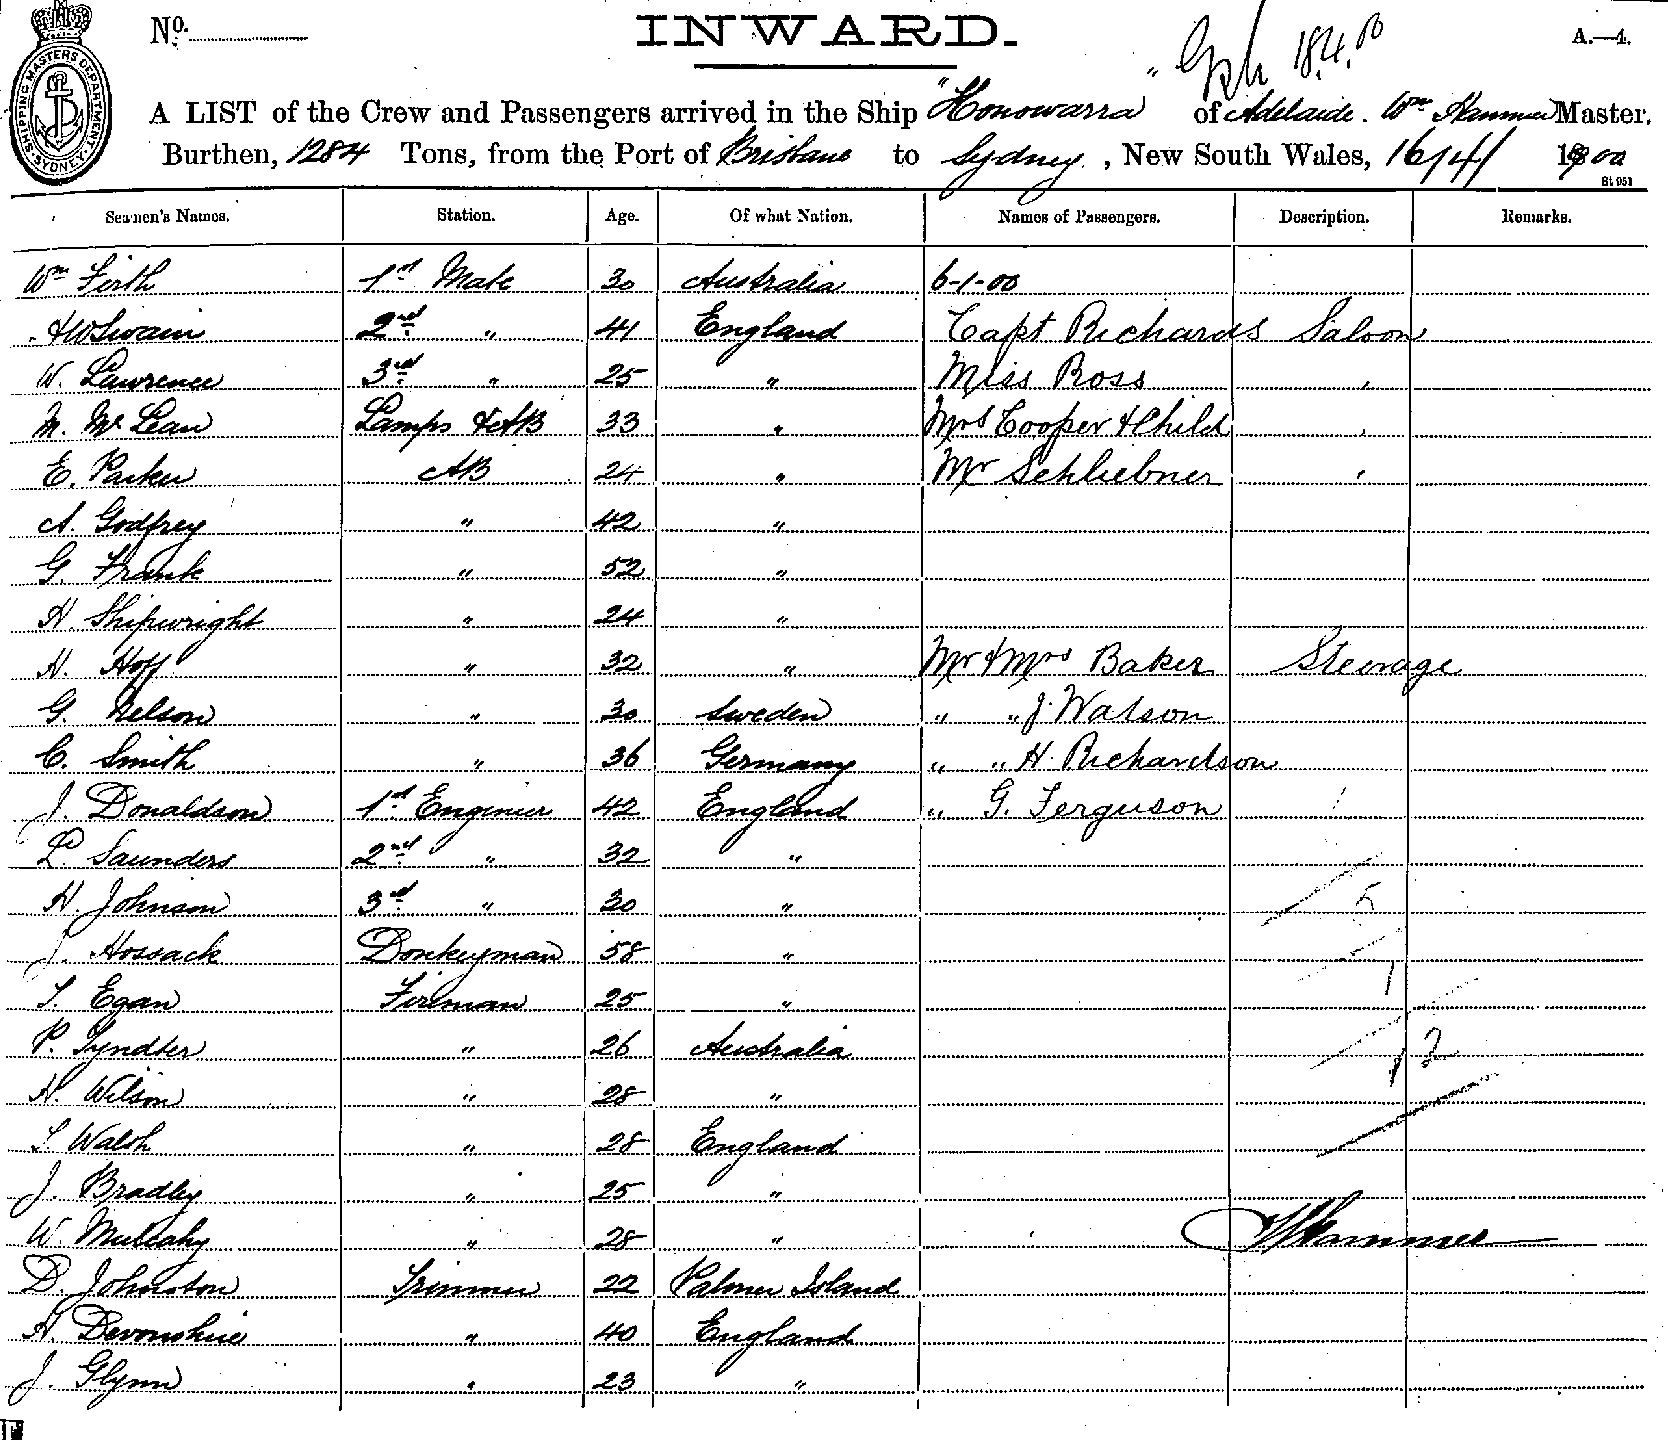 No. INWARD. A.—4.
18.4.00
A LIST of the Crew and Passengers arrived in the Ship "Konowarra" of Adelaide. Wm Hammer Master,
Burthen, 1284 Tons, from the Port of Brisbane to Sydney, New South Wales, 16/4/ 1900
St 951
SHIPPING MASTERS DEPARTMENT SYDNEY
Seamen's Names. Station. Age. Of what Nation. Names of Passengers. Description. Remarks.
Wm Firth 1st Mate 30 Australia 6-1-00
HW Swain 2nd " 41 England Capt Richards Saloon
W. Lawrence 3rd " 25 " Miss Ross "
M. McLean Lamps & AB 33 " Mrs Cooper & Child "
E. Parker AB 24 " Mr Schliebner "
A. Godfrey " 42 "
G. Frank " 52 "
H Shipwright " 24 "
H. Hoff " 32 " Mr & Mrs Baker Steerage
G. Nelson " 30 Sweden " " J. Watson
C. Smith " 36 Germany " " H. Richardson
J. Donaldson 1st Engineer 42 England " G. Ferguson
L. Saunders 2nd " 32 "
H. Johnson 3rd " 30 " 5
J. Hossack Donkeyman 58 "
T. Egan Fireman 25 " 1
P. Tyndter " 26 Australia 12
H. Wilson " 28 "
T Walsh " 28 England
J. Bradley " 25 "
W. Mulcahy " 28 " WHammer
D. Johnston Trimmer 22 Palmer Island
H Devonshire " 40 England
J. Glynn " 23 "